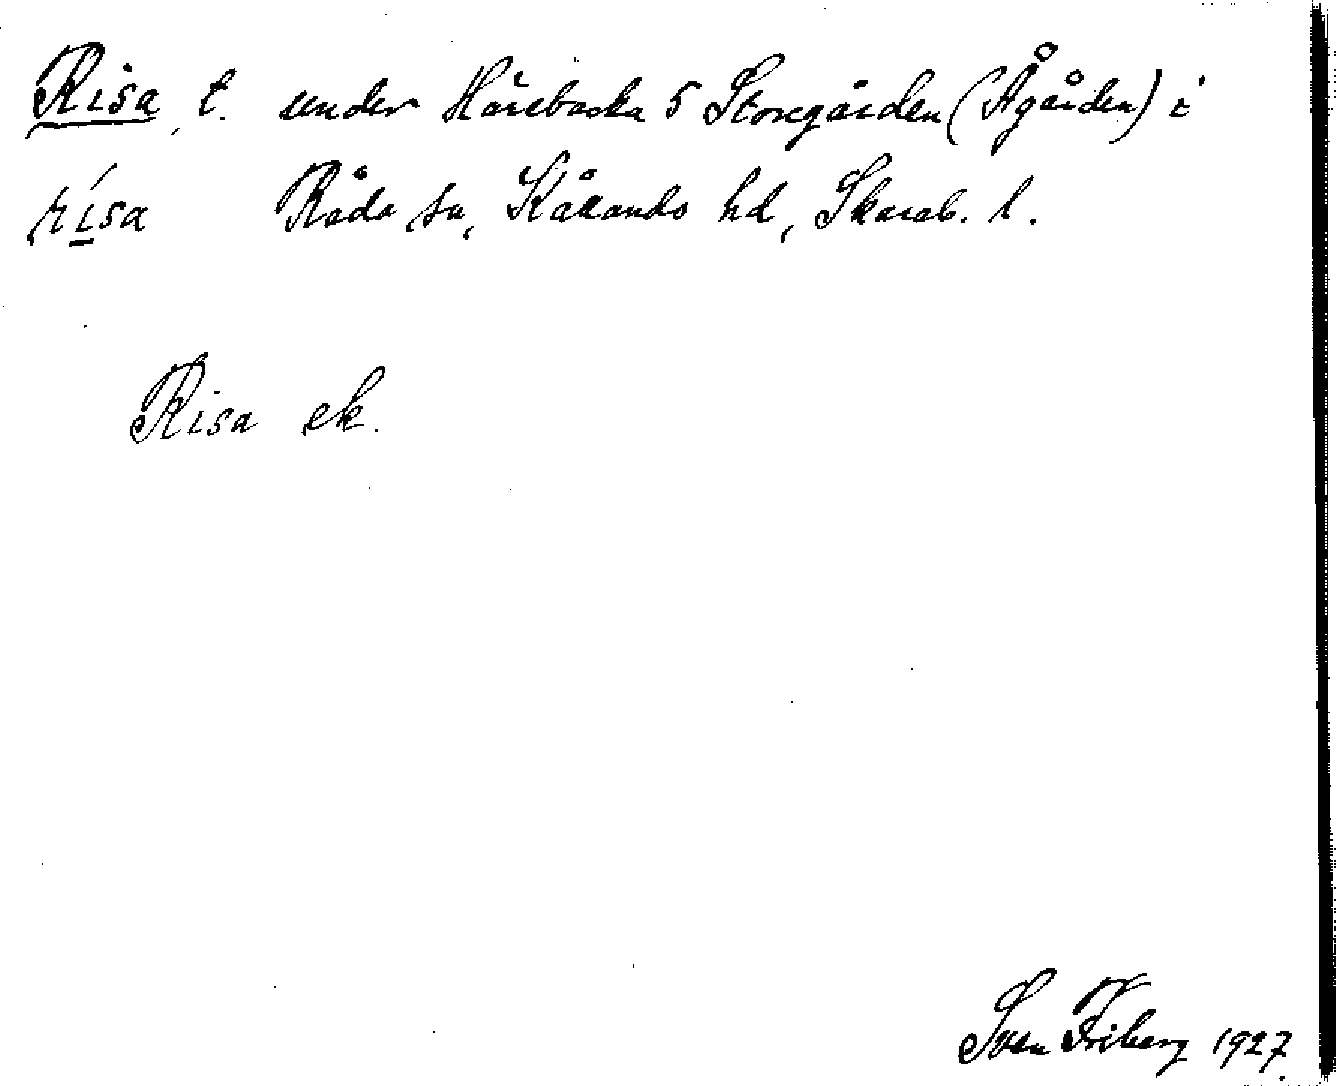 Risa, t. under Härebacka 5 Storegården (Ågården) i
rísa Råda sn, Kållands hd, Skarab. l.
Risa ek.
Sven Friberg 1927.